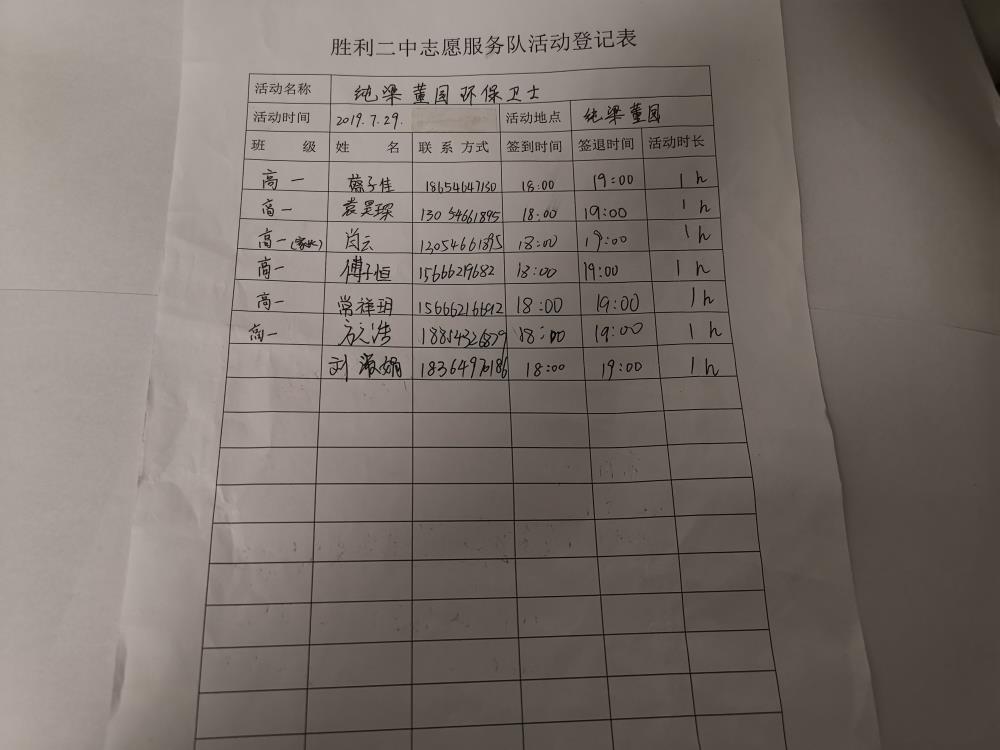 胜利二中志愿服务队活动登记表
活动名称 纯梁 董园 环保卫士
活动时间 2019.7.29. 活动地点 纯梁 董园
班 级 姓 名 联系方式 签到时间 签退时间 活动时长
高一 子佳 18654647130 18:00 19:00 1h
高一 袁昊琛 13054661895 18:00 19:00 1h
高一(家长) 闫云 13054661895 18:00 19:00 1h
高一 傅子恒 15666219682 18:00 19:00 1h
高一 常祥玥 15666216692 18:00 19:00 1h
高一 浩 18:00 19:00 1h
刘 娟 18:00 19:00 1h